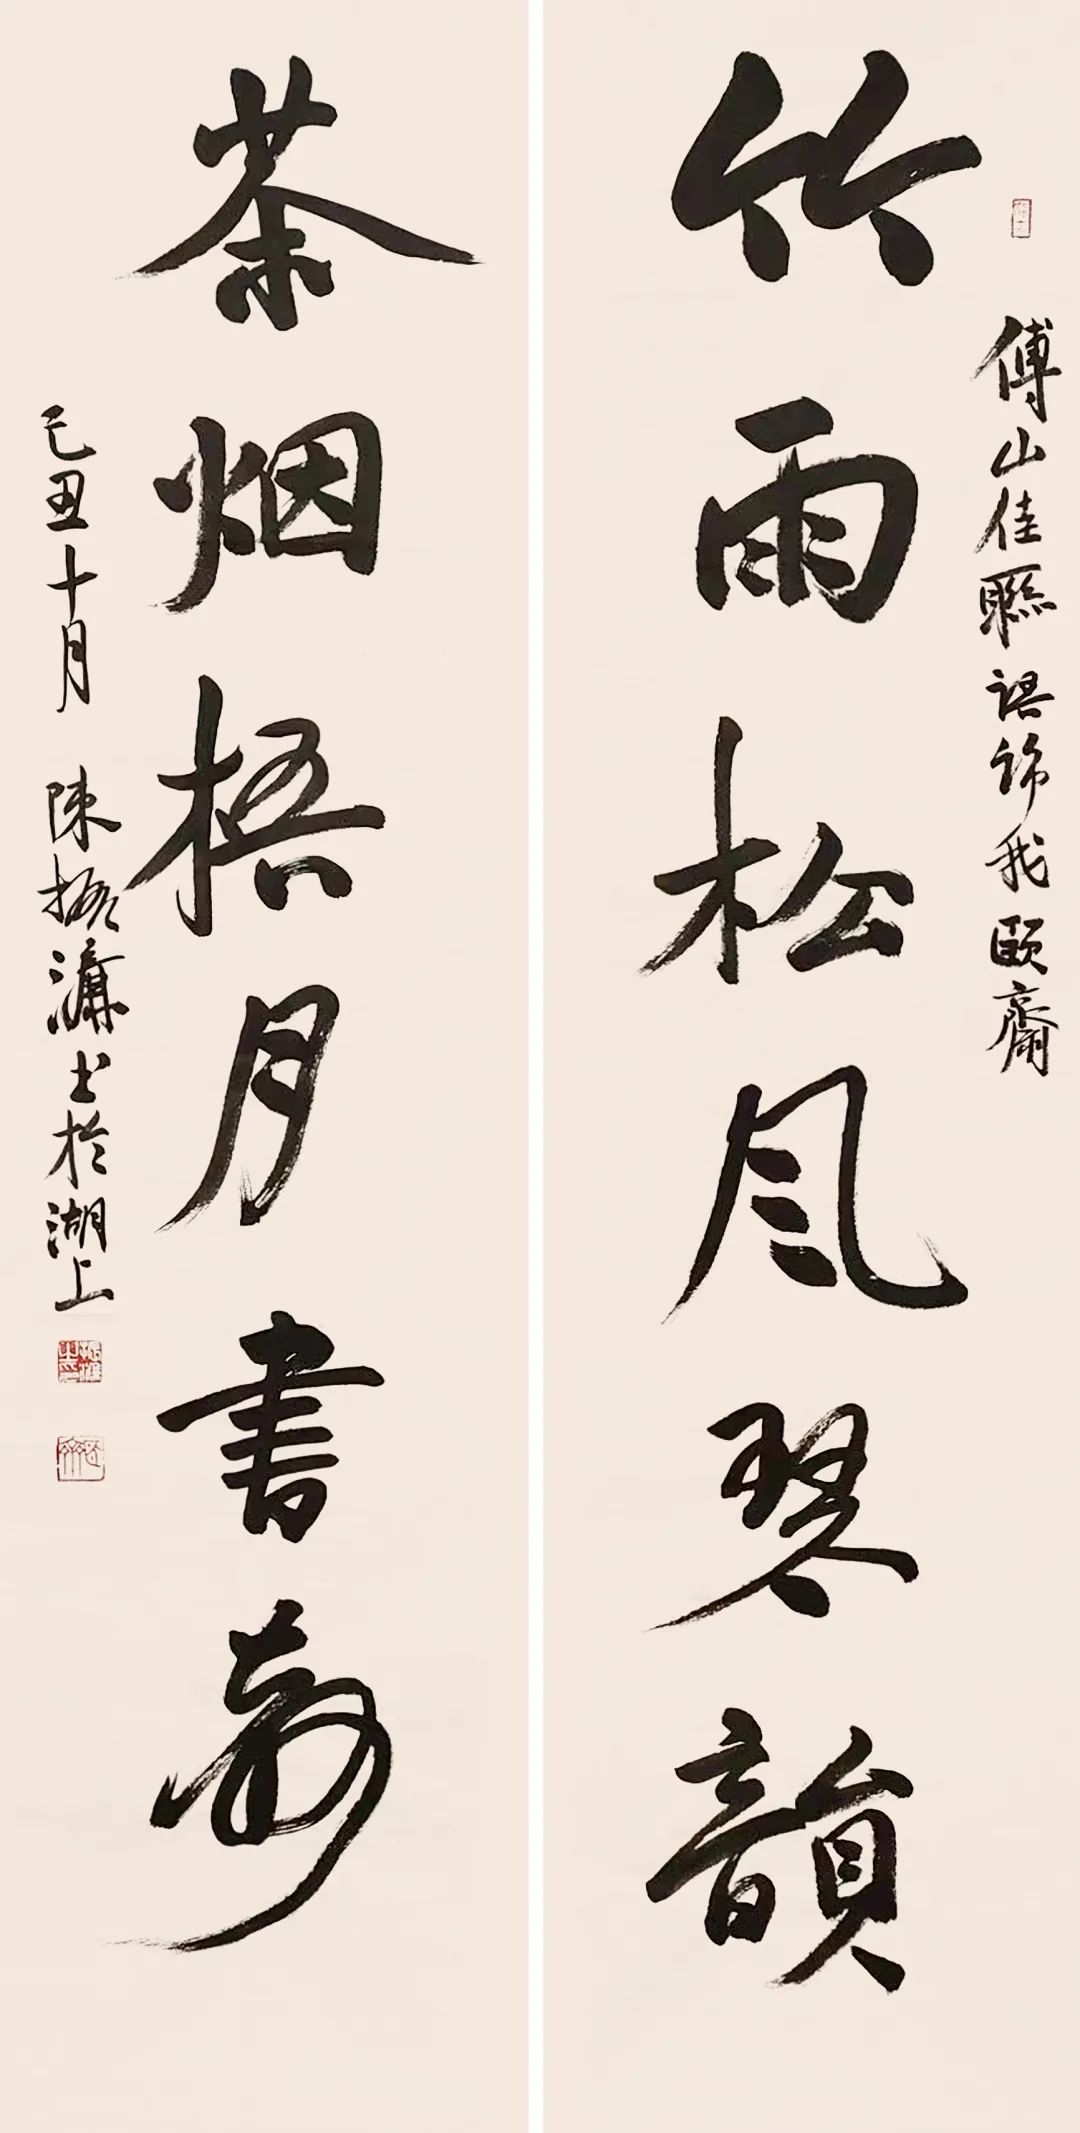 傅山佳聯語飾我頤齋
竹雨松風琴韻
茶烟梧月書聲
己丑十月 陳振濂書於湖上